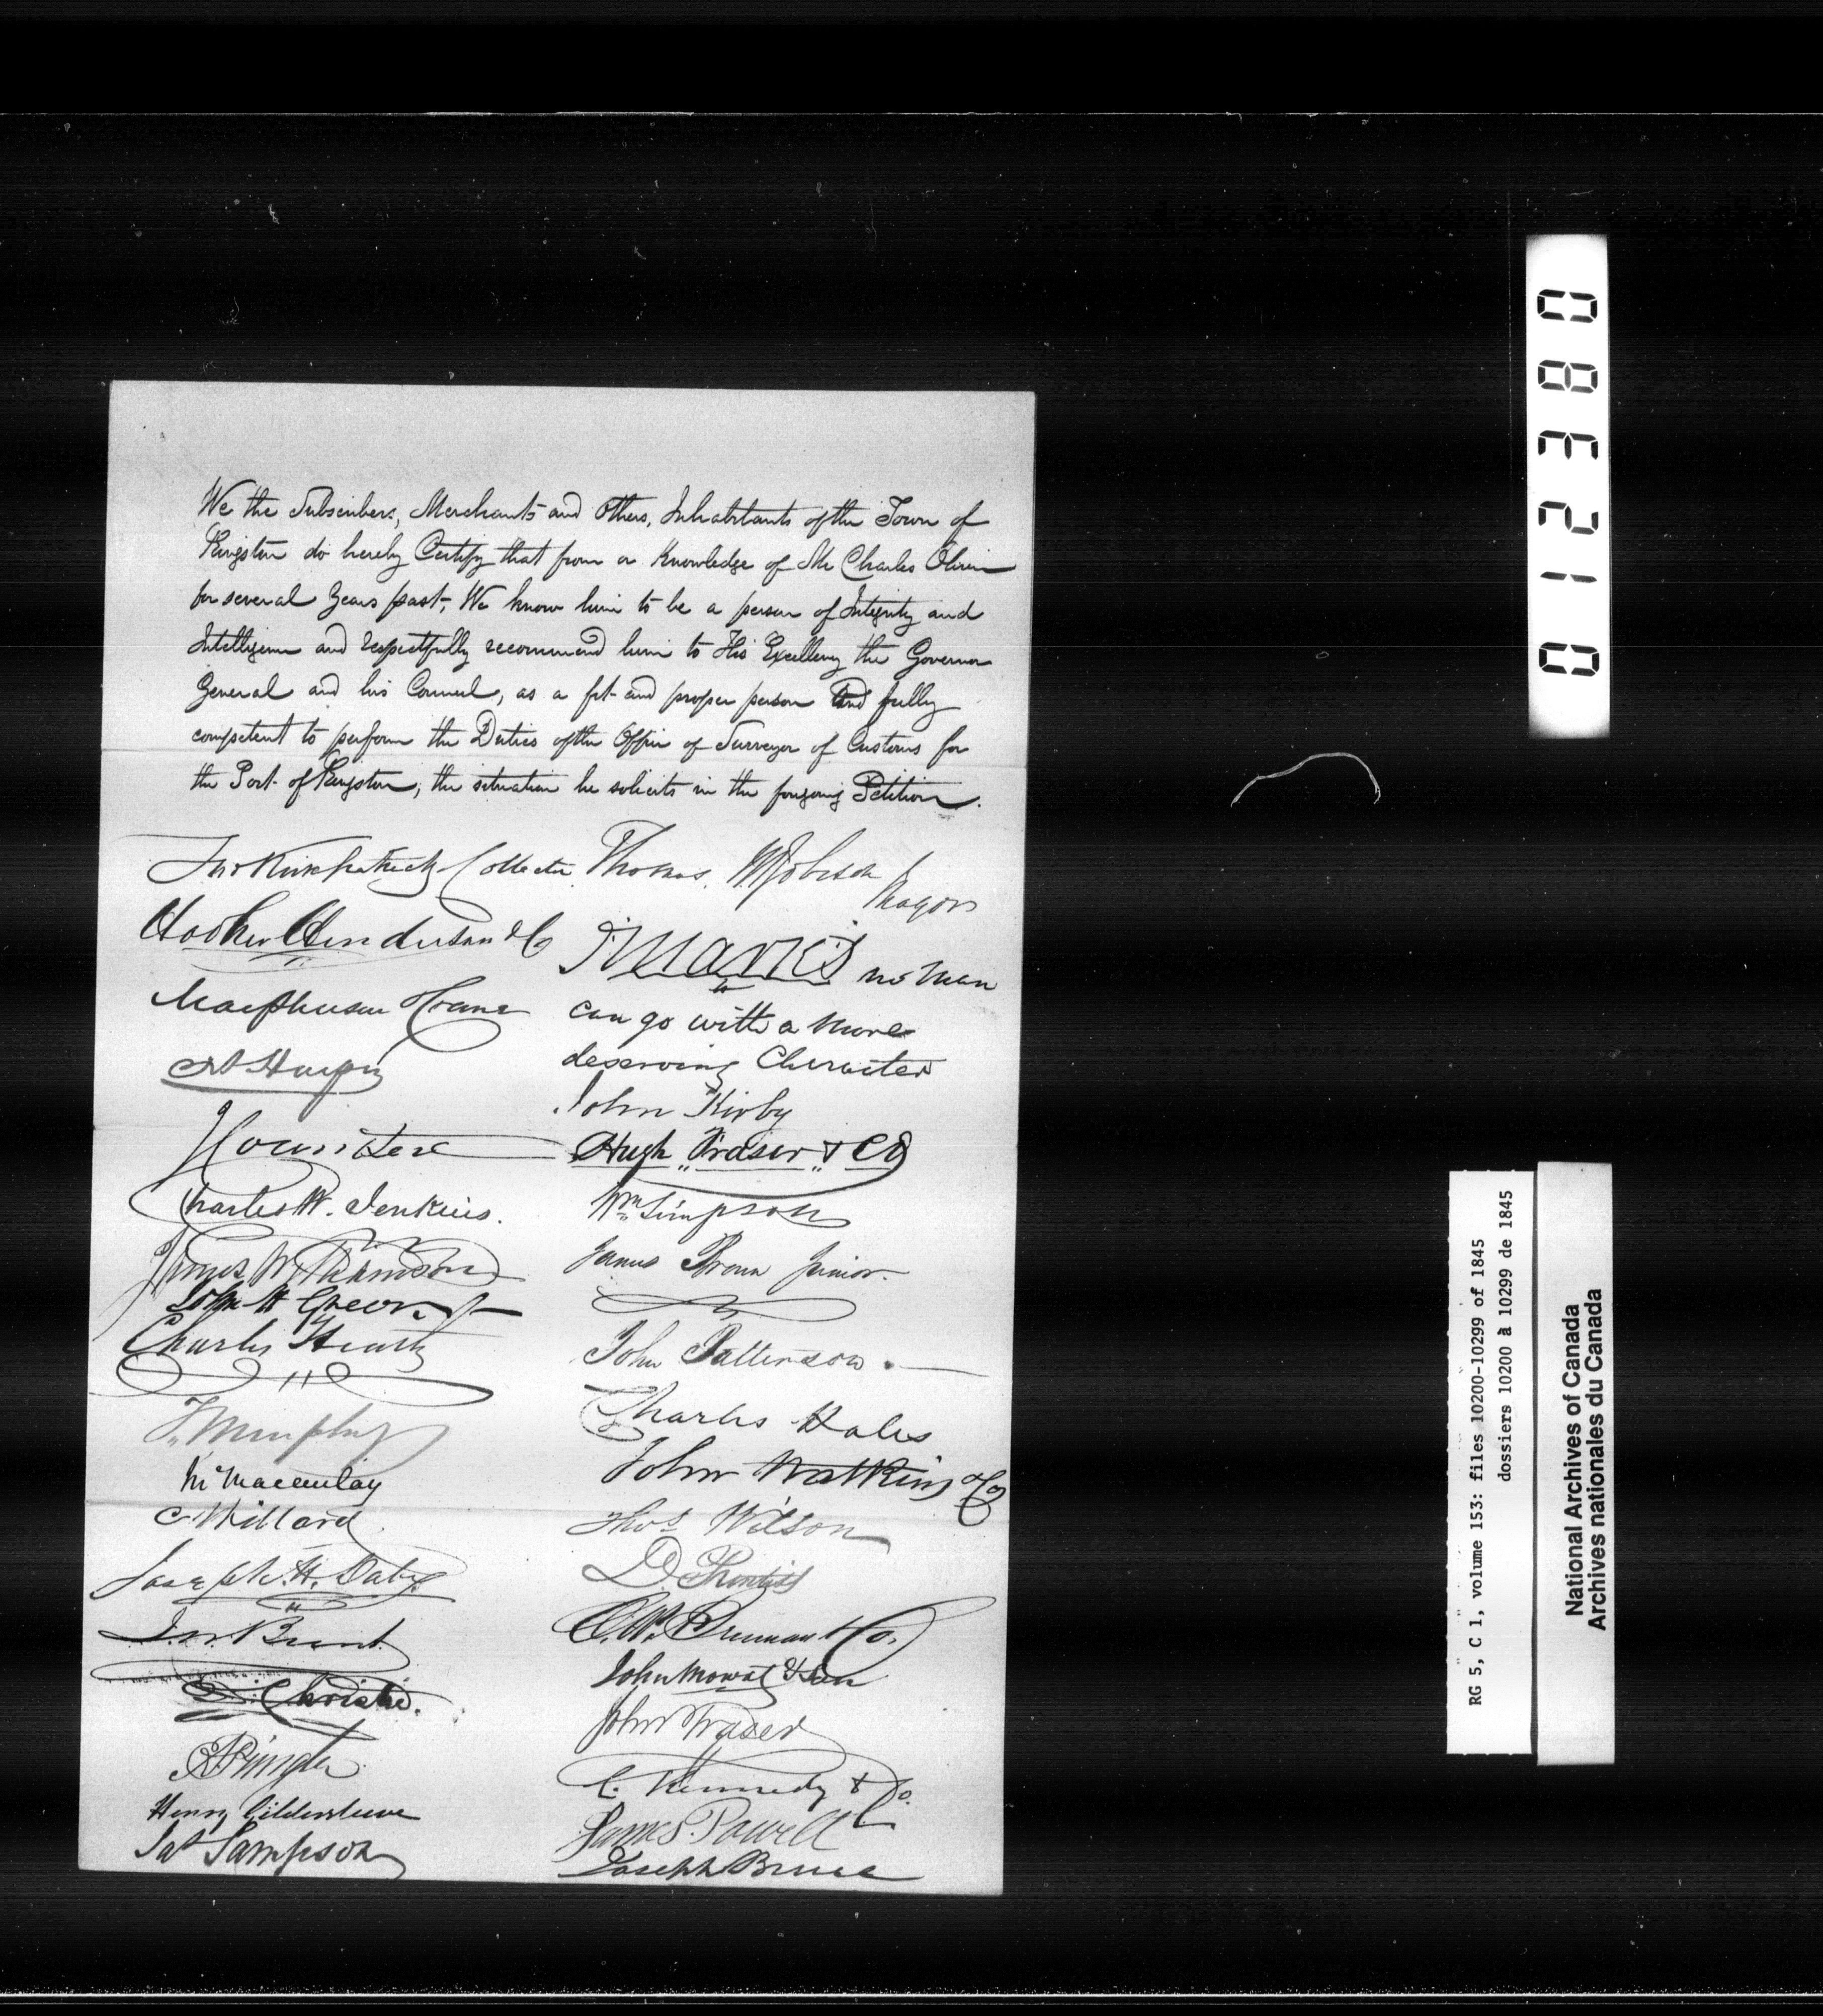 We the Subscribers, Merchants and Others, Inhabitants of the Town of
Kingston do hereby Certify that from a Knowledge of Mr Charles Oliver
for several Years past, We know him to be a person of Integrity and
Intelligence and respectfully recommend him to His Excellency the Governor
General and his Council, as a fit and proper person and fully
competent to perform the Duties of the Office of Surveyor of Customs for
the Port of Kingston; the situation he solicits in the foregoing Petition.
Thos Kirkpatrick Collector
Hooker Henderson & Co
Macpherson & Crane
Charles W. Jenkins.
Charles Heath
J. Murphy
C. Willard
D. Christie.
Henry Gildersleeve
Jas Sampson
Thomas W. Robison
Mayor
J. Marks no man
can go with a more
deserving Character
John Kirby
Hugh Fraser & Co
Wm Simpson
James Brown Junior.
John Patterson.
Charles Hales
John Watkins & Co
Thos Wilson
D Prentiss
John Mowat & Son
John Fraser
C. Kennedy & Co.
James Powell
Joseph Bruce
012380
RG 5, C 1, volume 153: files 10200-10299 of 1845
dossiers 10200 à 10299 de 1845
National Archives of Canada
Archives nationales du Canada